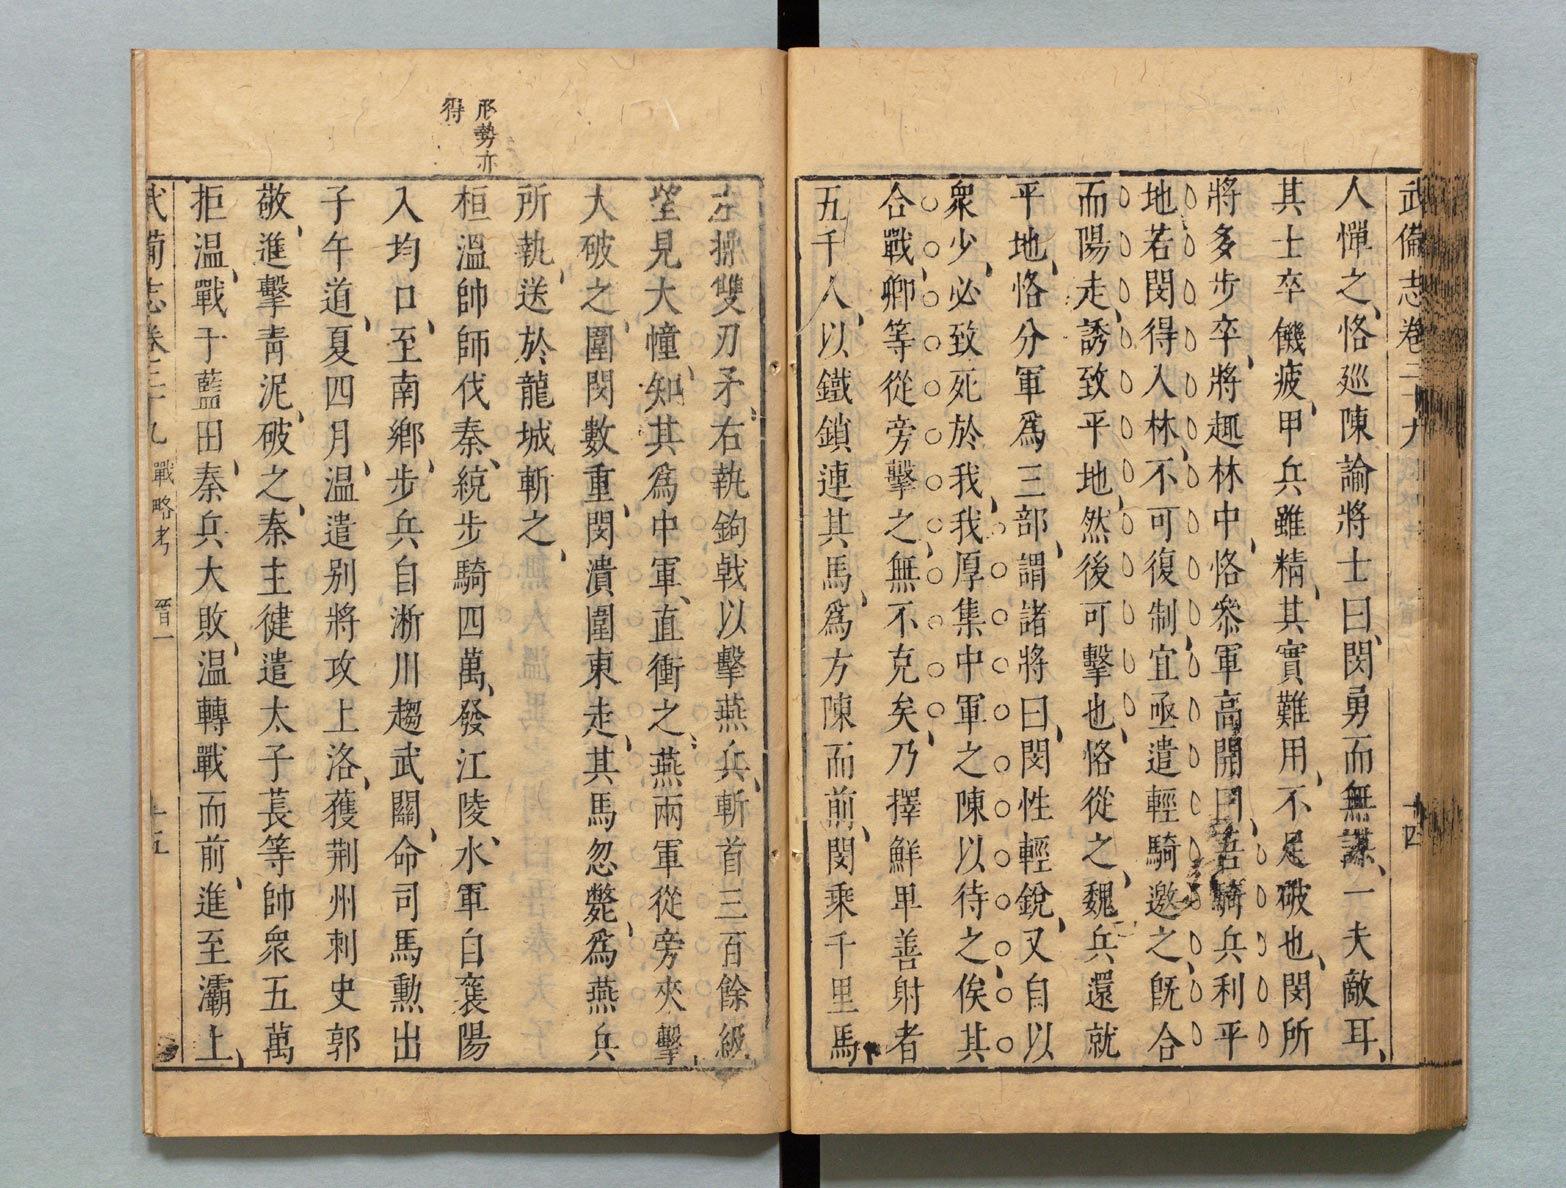 武備志卷三十九
十四
人憚之恪廵陳諭將士曰閔勇而無謀一夫敵耳
其士卒饑疲甲兵雖精其實難用不足破也閔所
將多步卒將趣林中恪叅軍高開曰吾騎兵利平
地若閔得入林不可復制宜亟遣輕騎邀之旣合
而陽走誘致平地然後可擊也恪從之魏兵還就
平地恪分軍爲三部謂諸將曰閔性輕銳又自以
衆少必致死於我我厚集中軍之陳以待之俟其
合戰卿等從旁擊之無不克矣乃擇鮮卑善射者
五千人以鐵鎖連其馬爲方陳而前閔乘千里馬
左操雙刃矛右執鉤戟以擊燕兵斬首三百餘級
望見大幢知其爲中軍直衝之燕兩軍從旁夾擊
大破之圍閔數重閔潰圍東走其馬忽斃爲燕兵
所執送於龍城斬之
形勢亦
得
桓溫帥師伐秦統步騎四萬發江陵水軍自襄陽
入均口至南鄉步兵自淅川趨武關命司馬勲出
子午道夏四月温遣别將攻上洛獲荆州刺史郭
敬進擊青泥破之秦主健遣太子萇等帥衆五萬
拒温戰于藍田秦兵大敗温轉戰而前進至灞上
武備志卷三十九 戰略考 晉一
十五